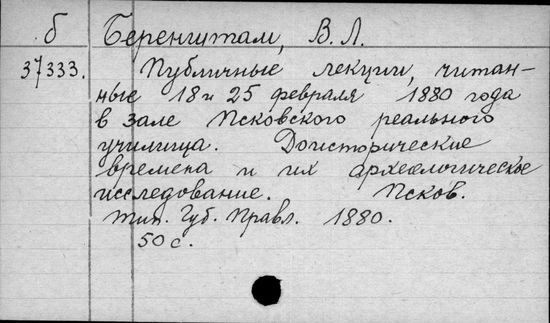 б Беренштам, В. Л.
37333. Публичные лекции, читан-
ные 18 и 25 февраля 1880 года
в зале Псковского реального
училища. Доисторические
времена и их археологическое
исследование. Псков.
Тип. Губ. Правл. 1880.
50 с.